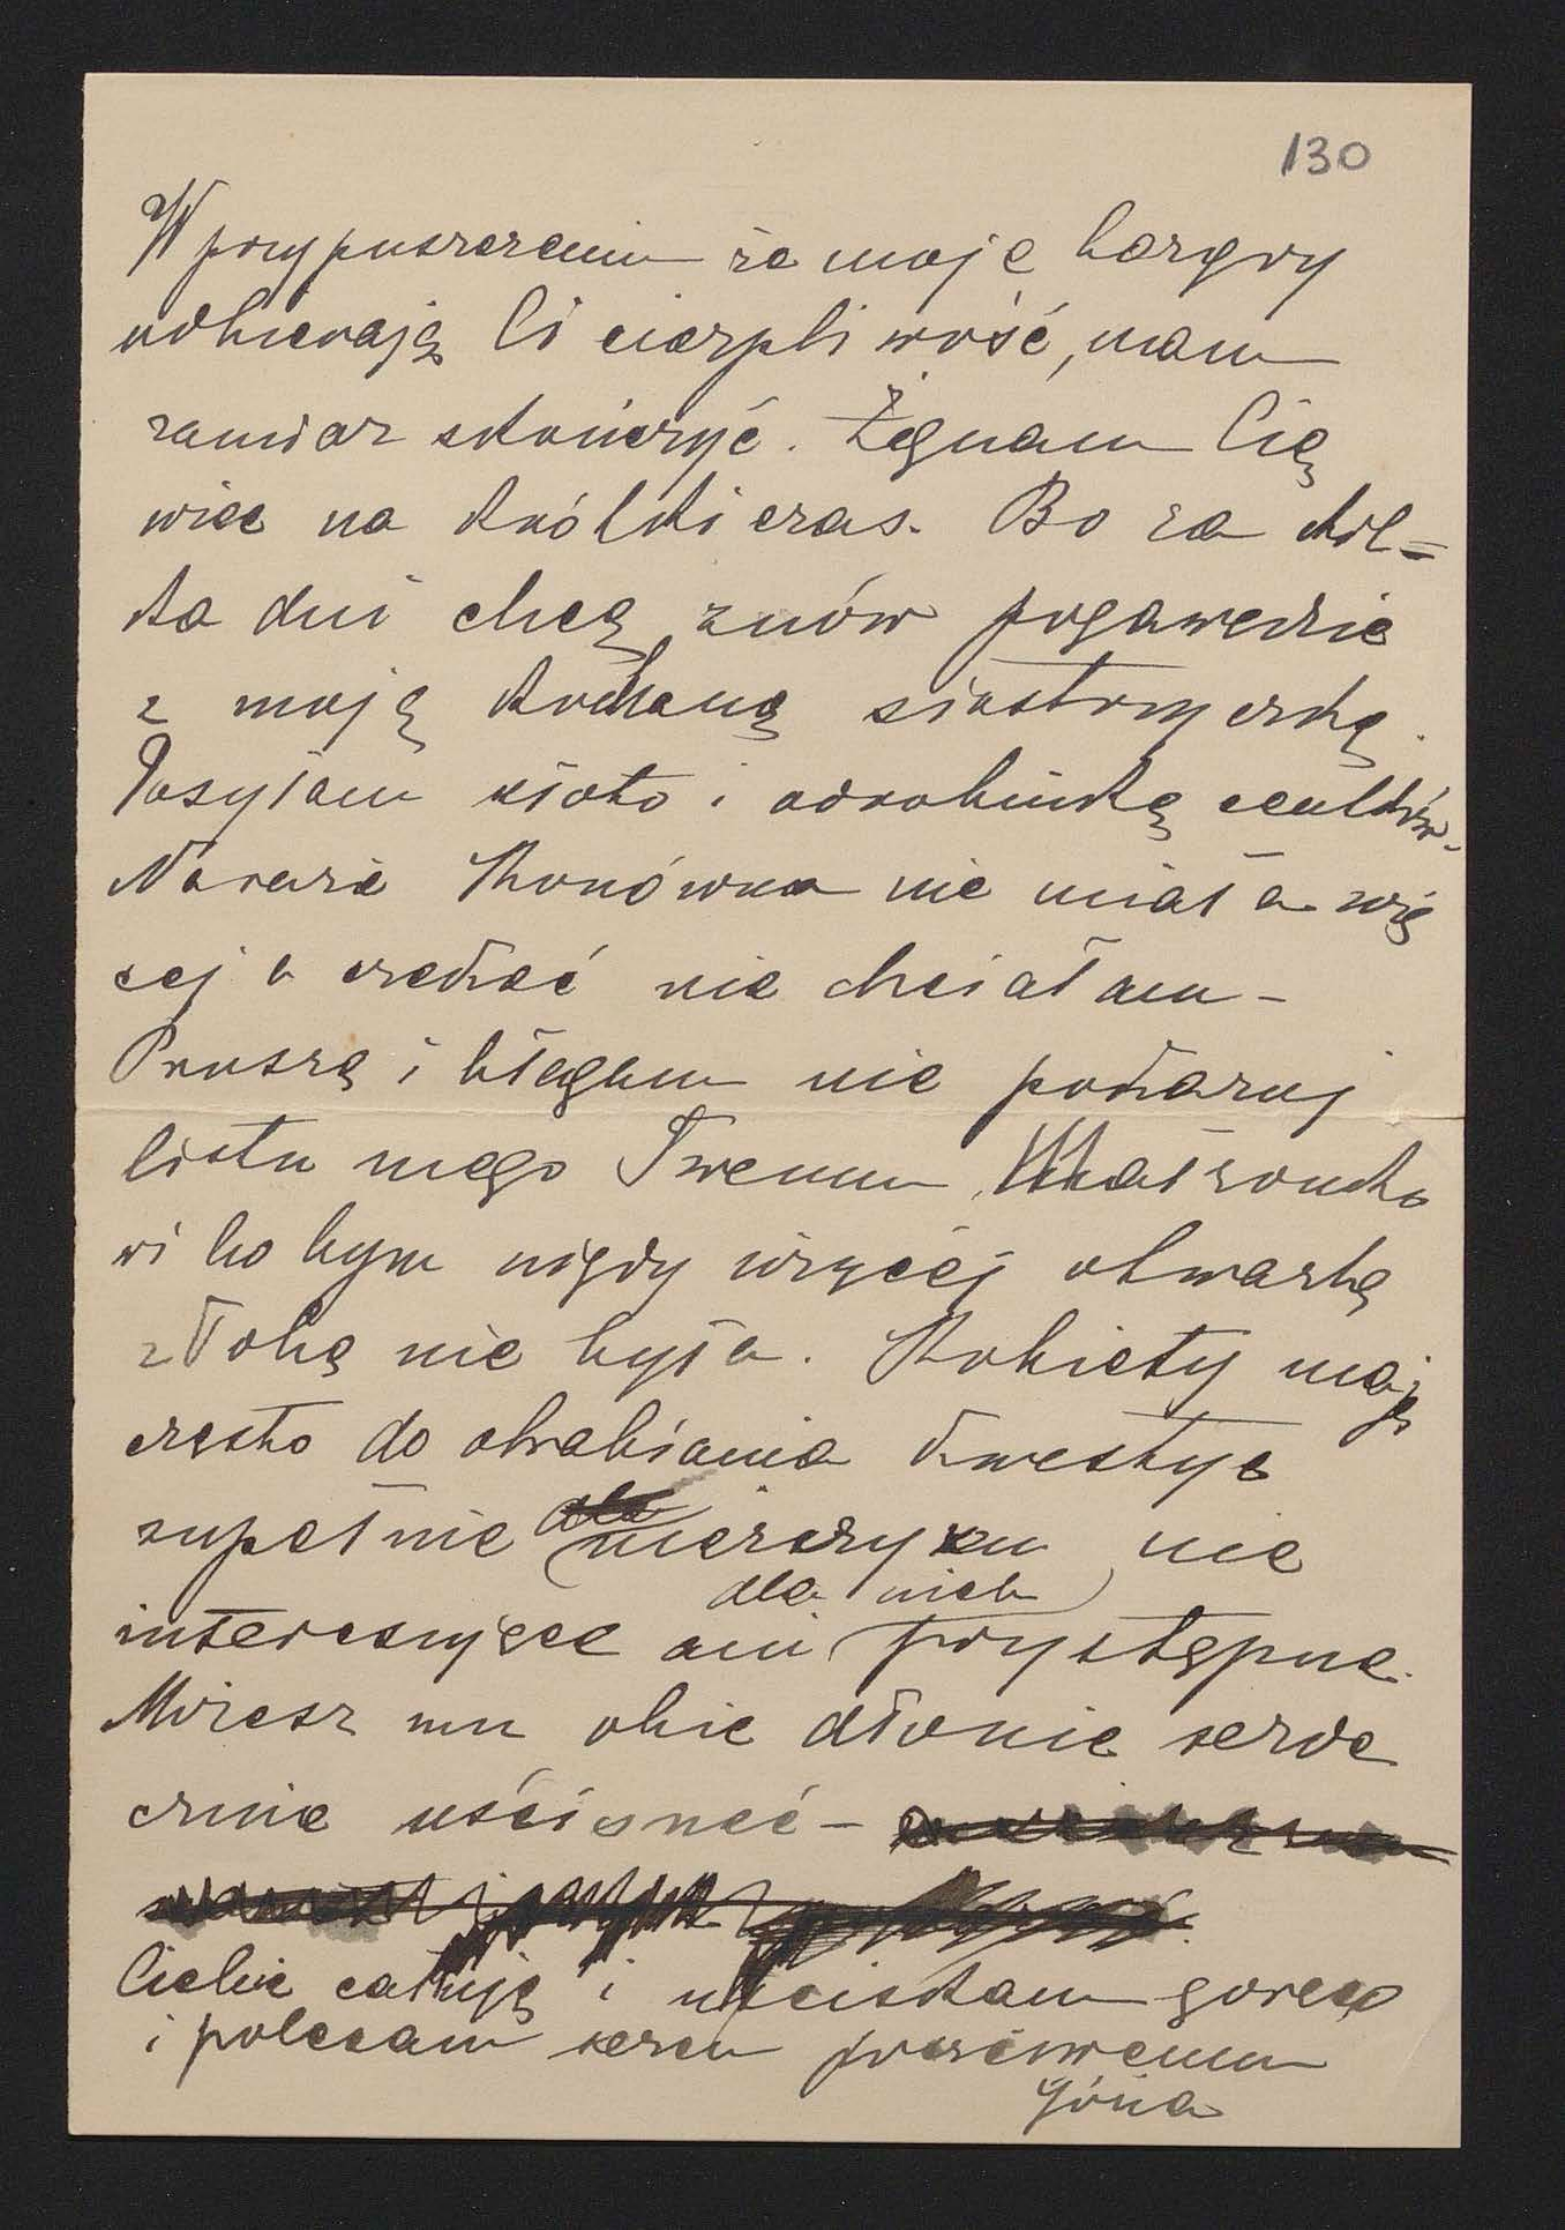 130
W przypuszczeniu że moje bazgry
odbierają Ci cierpliwość, mam
zamiar skończyć. Żegnam Cię
więc na krótki czas. Bo za kil=
ka dni chcę znów pogawędzić
z moją kochaną siostrzyczką.
Posyłam ksioto i odrobinkę
Narazie Konówna nie miała wię
cej a czekać nie chciałam –
Proszę i błagam nie pokazuj
listu mego Twemu Małżonko
wi bo bym nigdy więcej otwartą
z Tobą nie była. Kobiety mają
często do obrabiania kwestye
zupełnie mężczyzn nie
dla nich
interesujące ani przystępne.
Możesz mu obie dłonie serde
cznie uścisnąć –
Ciebie całuję i uściskam gorąco
i polecam sercu poczciwemu
Józia